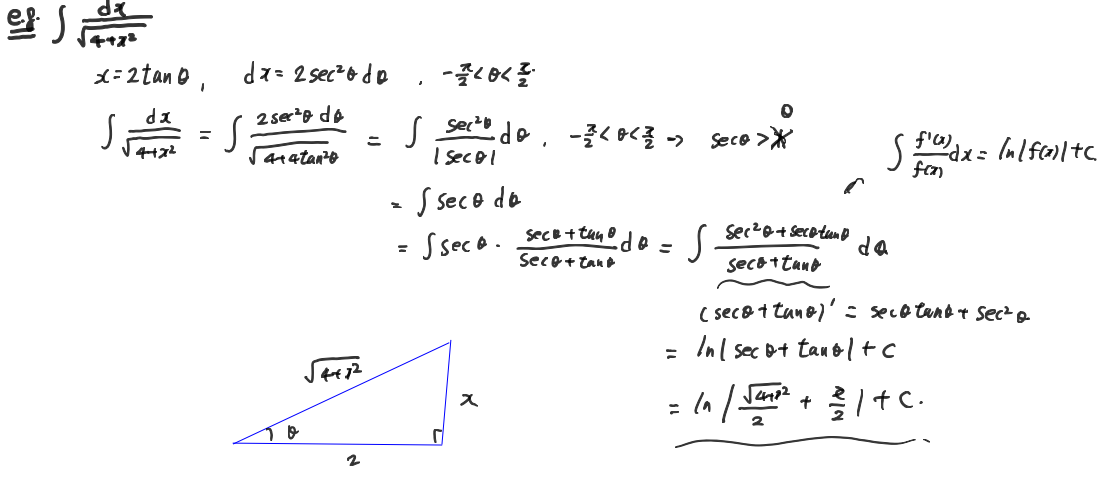 e.g. ∫ dx/√(4+x²)
x = 2tanθ, dx = 2sec²θ dθ, -π/2 < θ < π/2.
∫ dx/√(4+x²) = ∫ 2sec²θ dθ/√(4+4tan²θ) = ∫ sec²θ/|secθ| dθ, -π/2 < θ < π/2 → secθ > 0
∫ f'(x)/f(x) dx = ln|f(x)| + C
= ∫ secθ dθ
= ∫ secθ · (secθ+tanθ)/(secθ+tanθ) dθ = ∫ (sec²θ+secθtanθ)/(secθ+tanθ) dθ
(secθ+tanθ)' = secθtanθ + sec²θ
= ln|secθ+tanθ| + C
= ln|√(4+x²)/2 + x/2| + C.
√(4+x²)
x
θ
2